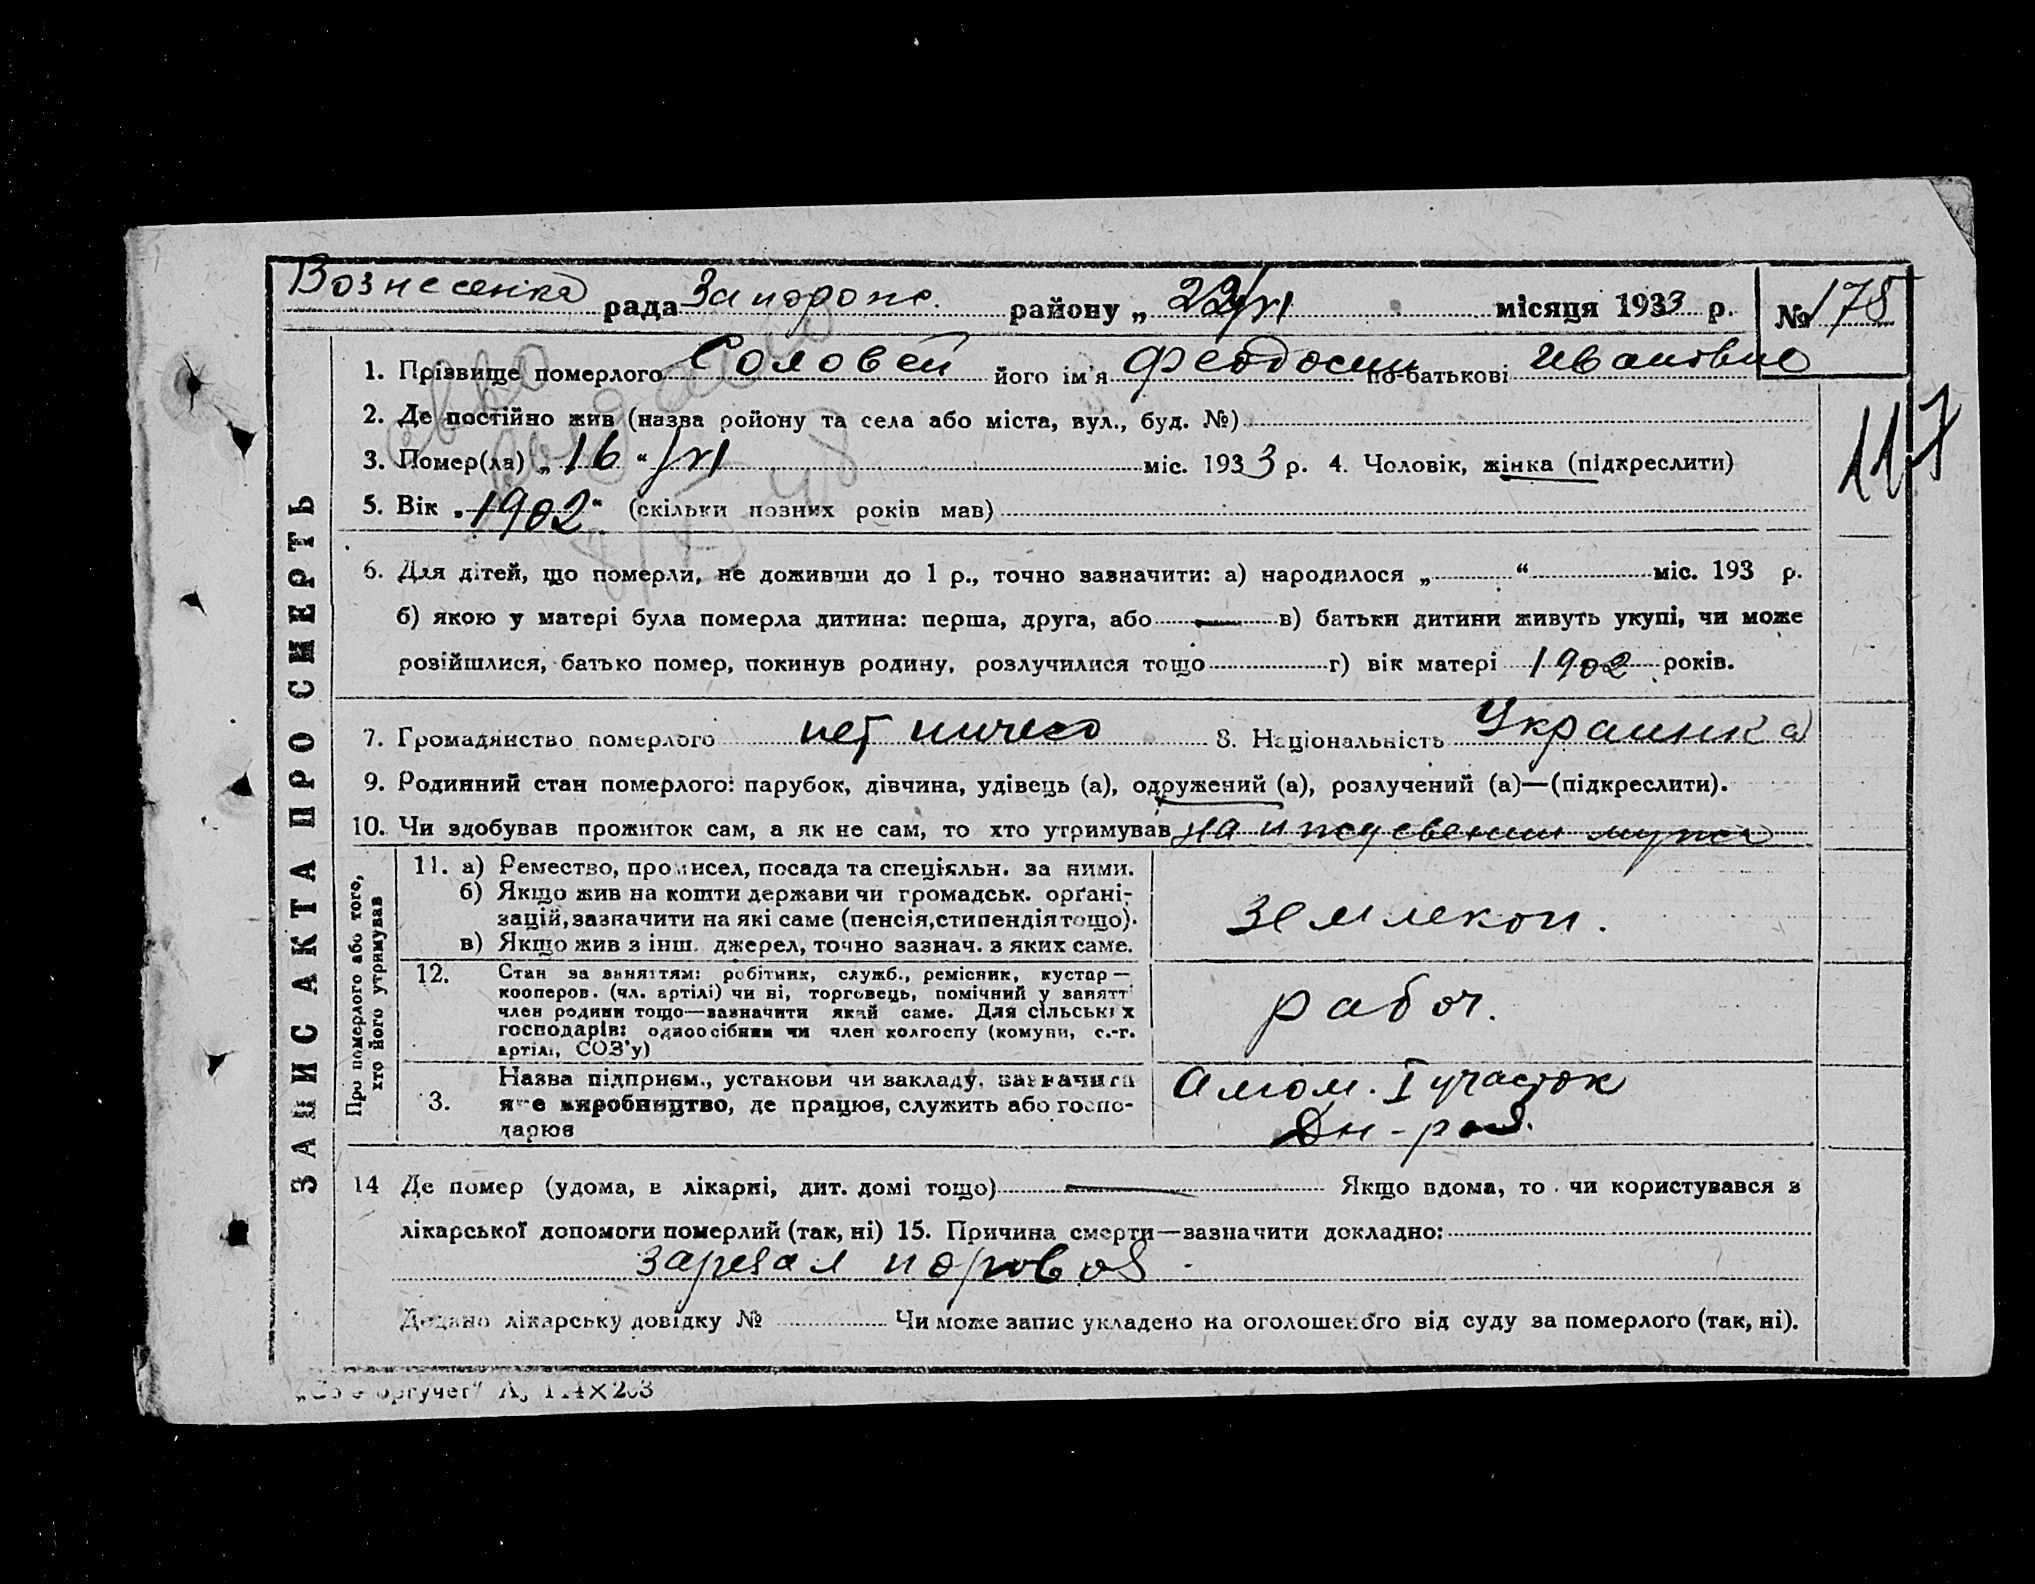 Вознесенка рада Запорож. району „ 22/VI місяця 1933 р. № 178
1. Прізвище померлого Соловей його ім'я Феодосии по-батькові Ивановне
117
2. Де постійно жив (назва ройону та села або міста, вул., буд. №)
3. Помер(ла) „ 16 “ VI міс. 1933 р. 4. Чоловік, жінка (підкреслити)
5. Вік „ 1902 “ (скільки повних років мав)
6. Для дітей, що померли, не доживши до 1 р., точно зазначити: а) народилося „ “ міс. 193 р.
б) якою у матері була померла дитина: перша, друга, або — в) батьки дитини живуть укупі, чи може
розійшлися, батько помер, покинув родину, розлучилися тощо г) вік матері 1902 років.
7. Громадянство померлого нет ничего 8. Національність Украинка
9. Родинний стан померлого: парубок, дівчина, удівець (а), одружений (а), розлучений (а)—(підкреслити).
10. Чи здобував прожиток сам, а як не сам, то хто утримував на иждевении мужа
ЗАПИС АКТА ПРО СМЕРТЬ
Про померлого або того, хто його утримував
11. а) Ремество, промисел, посада та спеціяльн. за ними.
б) Якщо жив на кошти держави чи громадськ. орґані-
зацій, зазначити на які саме (пенсія, стипендія тощо).
в) Якщо жив з інш. джерел, точно зазнач. з яких саме.
землекоп.
12. Стан за заняттям: робітник, служб., ремісник, кустар —
кооперов. (чл. артілі) чи ні, торговець, помічний у занятті
член родини тощо—зазначити який саме. Для сільських
господарів: одноосібник чи член колгоспу (комуни, с.-г.
артілі, СОЗ'у)
рабоч.
13. Назва підприєм., установи чи закладу, зазначити
яке виробництво, де працює, служить або госпо-
дарює
I участок
14 Де помер (удома, в лікарні, дит. домі тощо) — Якщо вдома, то чи користувався з
лікарської допомоги померлий (так, ні) 15. Причина смерти—зазначити докладно:
зарезал
Додано лікарську довідку № Чи може запис укладено на оголошеного від суду за померлого (так, ні).